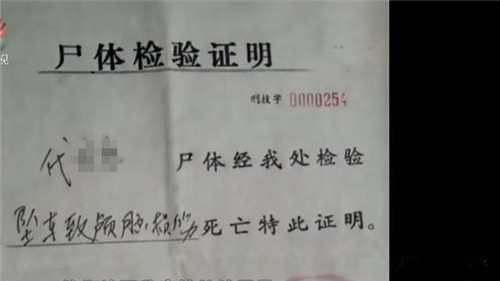 视
尸体检验证明
刑技字 0000254
代 尸体经我处检验
坠车致颅脑损伤死亡特此证明。